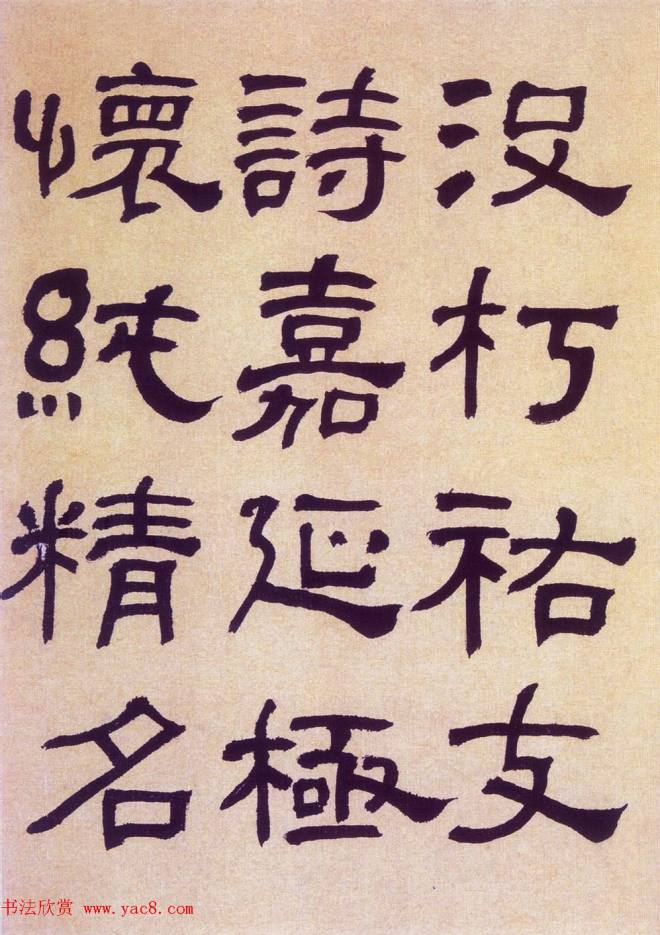 没朽祐支
詩嘉延極
懷純精名
书法欣赏 www.yac8.com